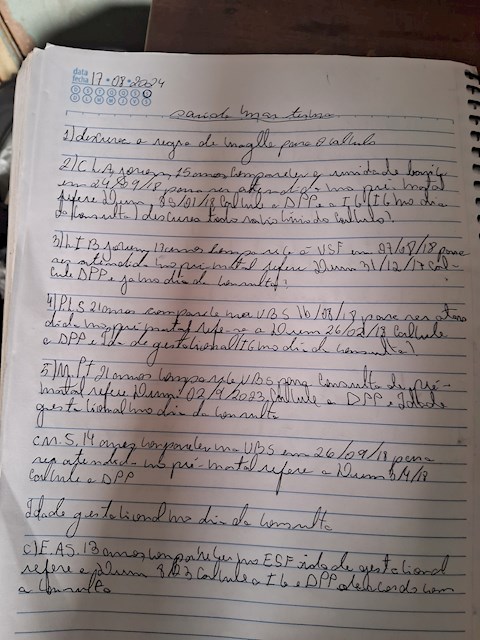 data
fecha 17•08•2024
D S T Q Q S S
D L M M J V S
saude Materna
1) descreva a regra de para o calculo
2) C L A, jovem, 15 anos comparece a unidade
em 24/09/18 para ser atendida no pré natal
refere Dum, 09/01/18 Calcule a DPP e a IG (IG no dia
da Consulta) descreva todo raciocinio do Calculo).
3) L I B jovem, 13 anos Comparece a USF em 07/08/18 para
ser atendida no pré natal refere Dum 31/12/17 Cal-
cule DPP e no dia da Consulta?
4) P.L.S 21 anos comparece na UBS 16/08/18 para ser aten
dida no pré natal refere a Dum 26/02/18 Calcule
a DPP e Ida de gestacional (IG no dia da Consulta)
5) M.P.T 21 anos Comparece UBS para Consulta de pré-
natal refere Dum 02/9/2023 Calcule a DPP e Idade
gestacional no dia da Consulta
C.M.S. 14 anos Comparece na UBS em 26/09/18 para
ser atendida no pré-natal refere a Dum /18
Calcule a DPP
Idade gestacional no dia da Consulta
c) E.A.S. 13 anos Compareceu no ESF idade gestacional
refere a Dum 8/23 Calcule a IG e DPP de acordo com
a Consulta